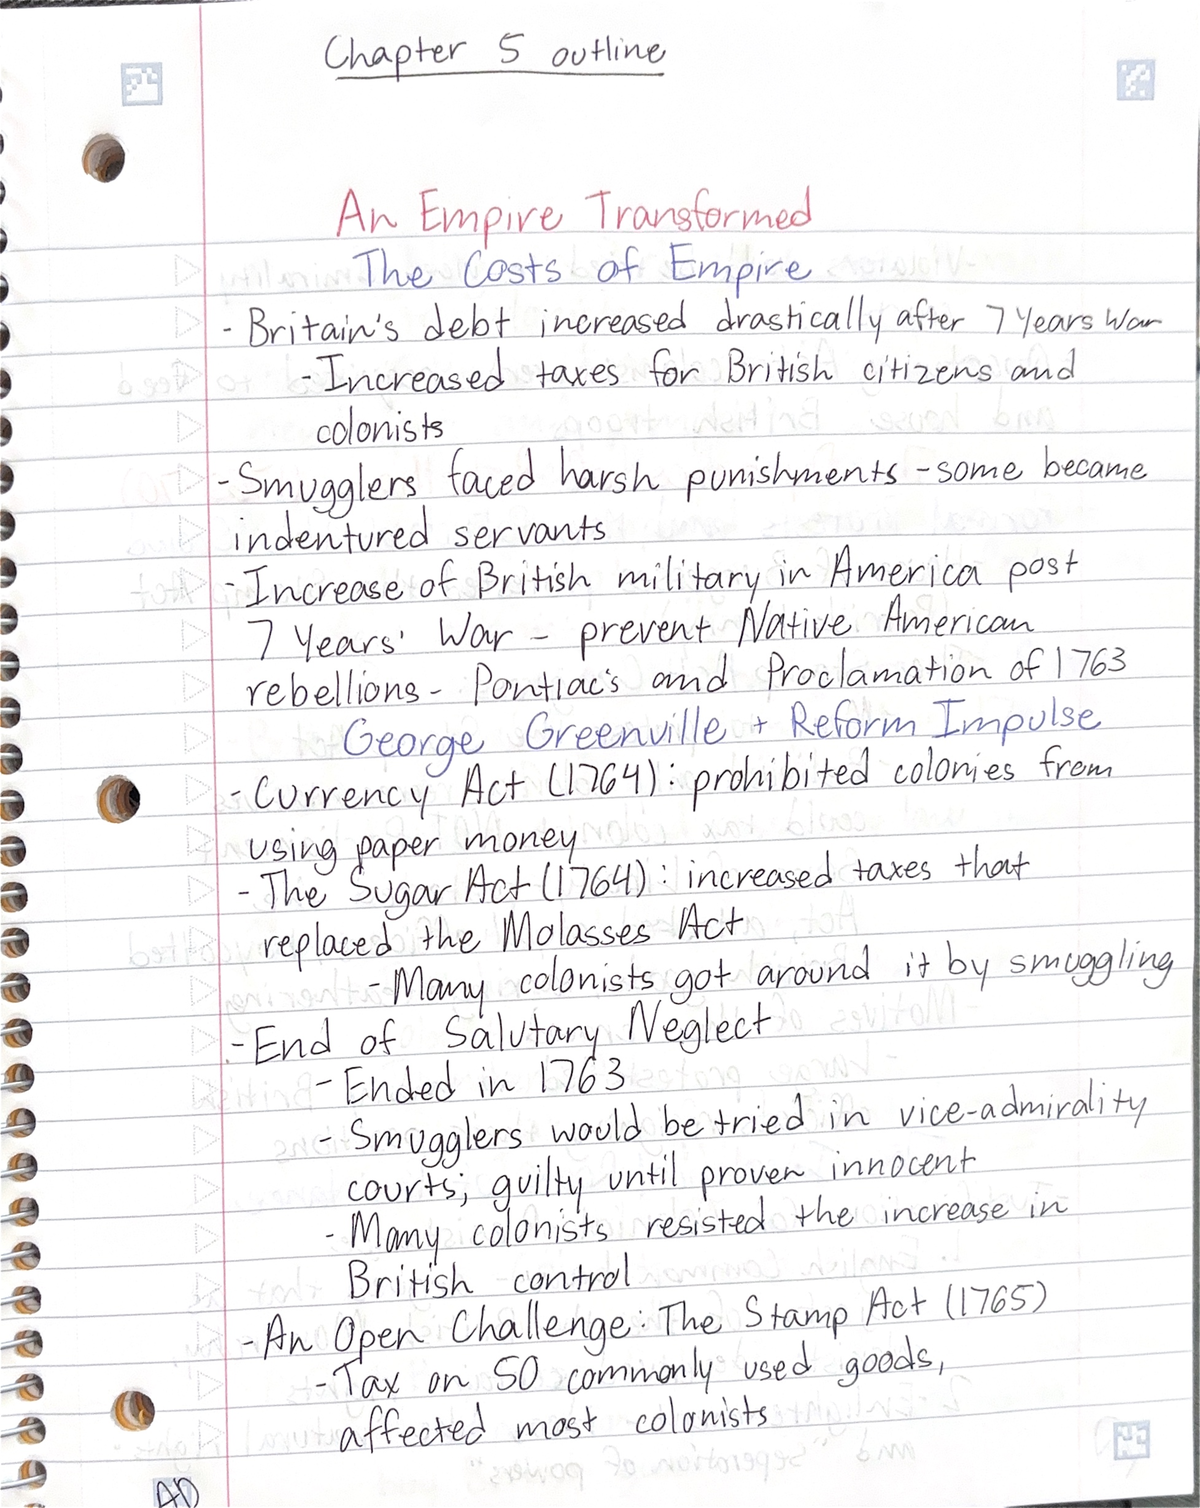 Chapter 5 outline
An Empire Transformed
The Costs of Empire
- Britain's debt increased drastically after 7 Years War
- Increased taxes for British citizens and
colonists
- Smugglers faced harsh punishments - some became
indentured servants
- Increase of British military in America post
7 Years' War - prevent Native American
rebellions - Pontiac's and Proclamation of 1763
George Greenville + Reform Impulse
- Currency Act (1764): prohibited colonies from
using paper money
- The Sugar Act (1764): increased taxes that
replaced the Molasses Act
- Many colonists got around it by smuggling
- End of Salutary Neglect
- Ended in 1763
- Smugglers would be tried in vice-admirality
courts; guilty until proven innocent
- Many colonists resisted the increase in
British control
- An Open Challenge: The Stamp Act (1765)
- Tax on 50 commonly used goods,
affected most colonists
AD